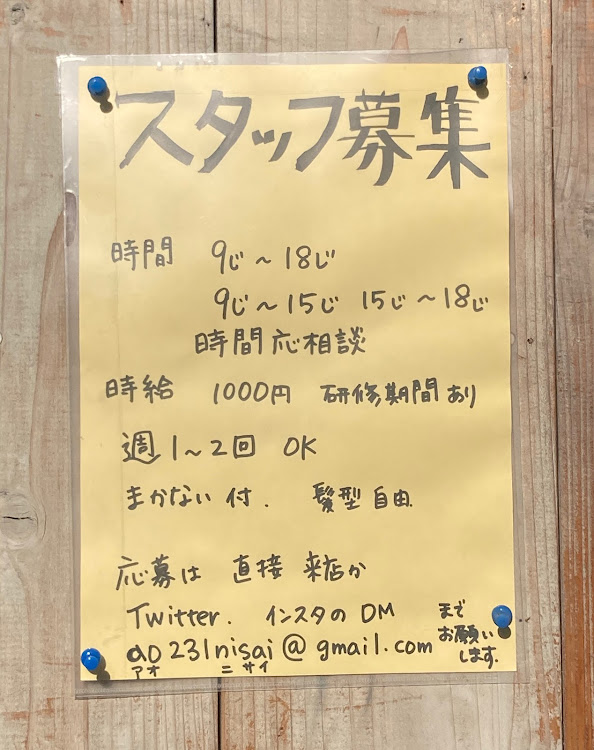 スタッフ募集
時間 9じ〜18じ
9じ〜15じ 15じ〜18じ
時間応相談
時給 1000円 研修期間あり
週1〜2回 OK
まかない付. 髪型自由.
応募は 直接 来店か
Twitter. インスタの DM
ao231nisai@gmail.com
アオ ニサイ
まで
お願い
します.